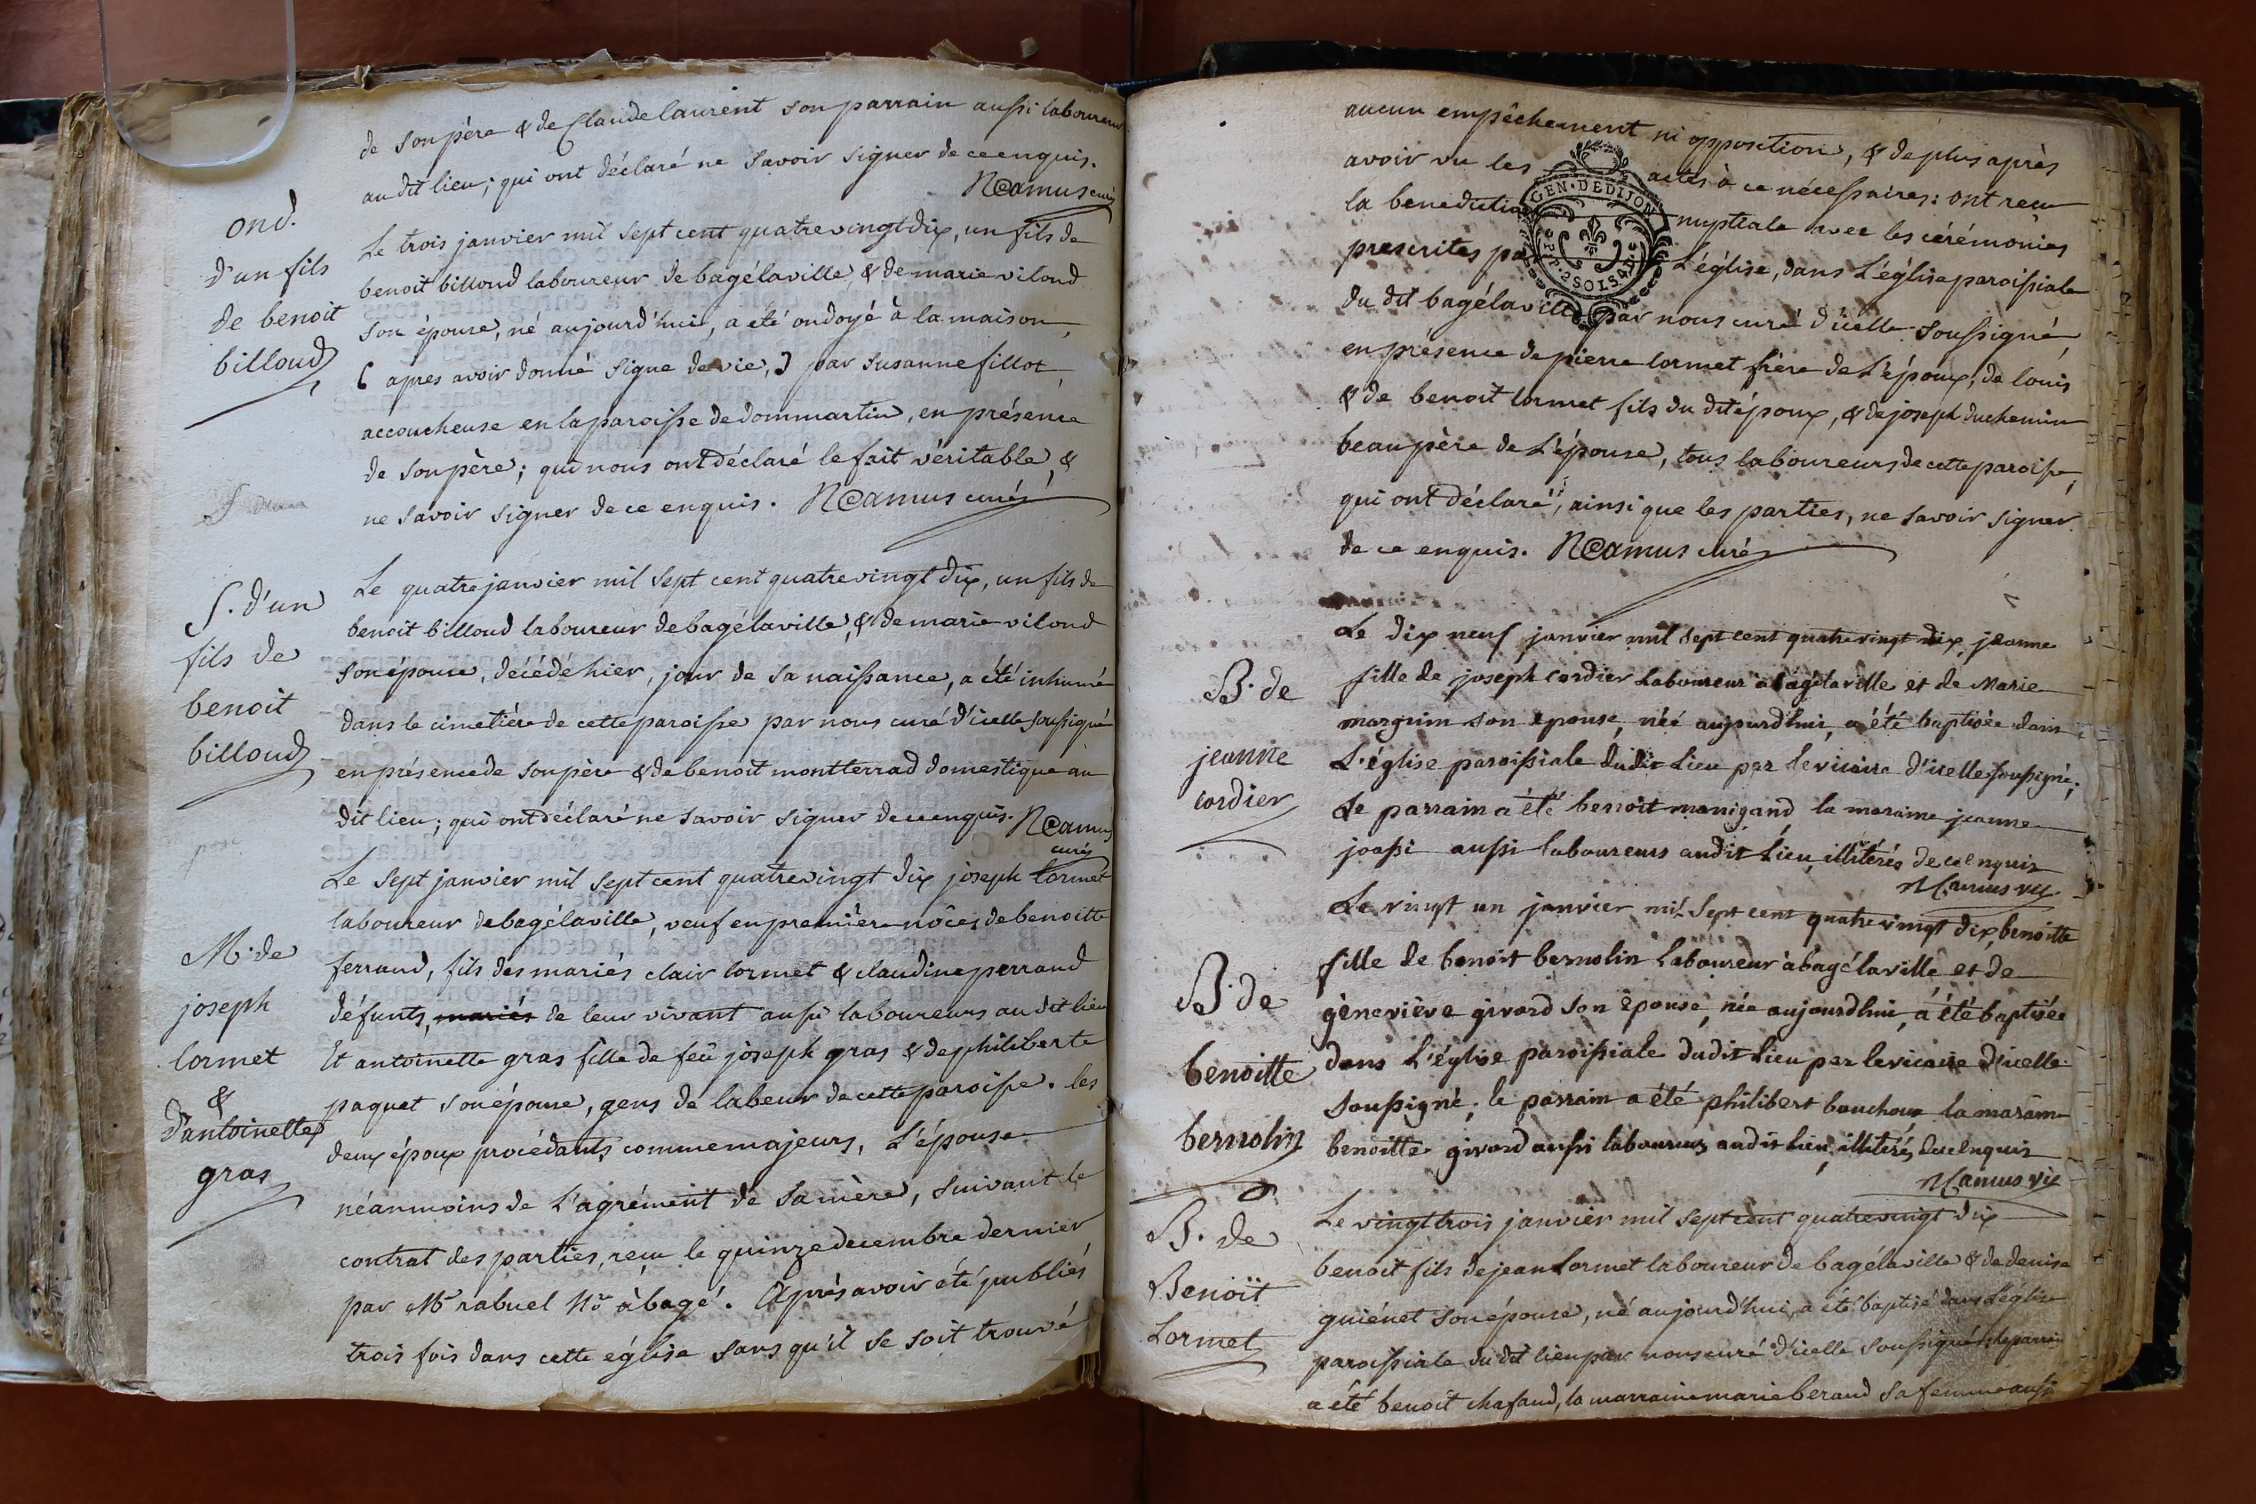 de son père & de Claude laurent son parrain aussi laboureur
au dit lieu; qui ont déclaré ne savoir signer de ce enquis.
NCamus curé
ond.
d'un fils
de benoit
billoud
Le trois janvier mil sept cent quatre vingt dix, un fils de
benoit billoud laboureur de bagélaville, & de marie viloud
son épouse, né aujourd'hui, a eté ondoyé à la maison,
( apres avoir donné signe de vie,) par susanne fillot
accoucheuse en la paroisse de dommartin, en présence
de son père; qui nous ont déclaré le fait véritable, &
ne savoir signer de ce enquis. NCamus curé
S. d'un
fils de
benoit
billoud
Le quatre janvier mil sept cent quatre vingt dix, un fils de
benoit billoud laboureur de bagélaville, & de marie viloud
son épouse, décédé hier, jour de sa naissance, a été inhumé
dans le cimetière de cette paroisse par nous curé d'icelle soussigné
en présence de son père & de benoit montterrad domestique au
dit lieu; qui ont déclaré ne savoir signer de ce enquis. NCamus
curé
M. de
joseph
lormet
&
d'antoinette
gras
Le sept janvier mil sept cent quatre vingt dix joseph lormet
laboureur de bagélaville, veuf en premières nôces de benoitte
ferrand, fils des mariés clair lormet & claudine perrand
défunts, mariés de leur vivant aussi laboureurs au dit lieu
Et antoinette gras fille de feû joseph gras & de philiberte
paquet son épouse, gens de labeur de cette paroisse. les
deux époux procédants comme majeurs, L'épouse
néanmoins de L'agrément de sa mère, suivant le
contrat des parties, reçu le quinze decembre dernier
par Mr rabuel Nre à bagé. Après avoir été publiés
trois fois dans cette église sans qu'il se soit trouvé
aucun empêchement ni opposition, & de plus après
avoir vu les actes à ce nécessaires: ont reçu
la benediction nuptiale avec les cérémonies
prescrites par L'église, dans L'église paroissiale
GEN. DE DIJON
2 SOLS 4 D.
du dit bagélaville par nous curé d'icelle soussigné,
en présence de pierre lormet frère de L'époux, de louis
& de benoit lormet fils du dit époux, & de joseph duchemin
beaupère de L'épouse, tous laboureurs de cette paroisse,
qui ont déclaré, ainsi que les parties, ne savoir signer
de ce enquis. NCamus curé
B. de
jeanne
cordier
Le dix neuf janvier mil sept cent quatre vingt dix, jeanne
fille de joseph cordier Laboureur a bagélaville et de Marie
morguin son epouse, née aujourdhui, a été baptisée dans
L'église paroissiale dudit Lieu par le vicaire d'icelle soussigné;
Le parrain a été benoit manigand la maraine jeanne
joassi aussi laboureurs audit Lieu, illitérés de ce Enquis
NCamus vic
B. de
benoitte
bernolin
Le vingt un janvier mil sept cent quatre vingt dix, benoitte
fille de benoit bernolin Laboureur à bagélaville et de
geneviève girard son epouse, née aujourdhui, a été baptisée
dans L'église paroissiale dudit Lieu par le vicaire d'icelle
soussigné; le parrain a été philibert bouchoux la maraine
benoitte girard aussi laboureurs audit lieu, illitérés de ce Enquis
NCamus vic
B. de
Benoït
Lormet
Le vingt trois janvier mil sept cent quatre vingt dix
benoit fils de jean Lormet laboureur de bagélaville & de denise
guiénet son épouse, né aujourd'hui, a été baptisé dans L'église
paroissiale du dit lieu par nous curé d'icelle soussigné, le parrain
a été benoit chafaud, la marraine marie beraud sa femme aussi